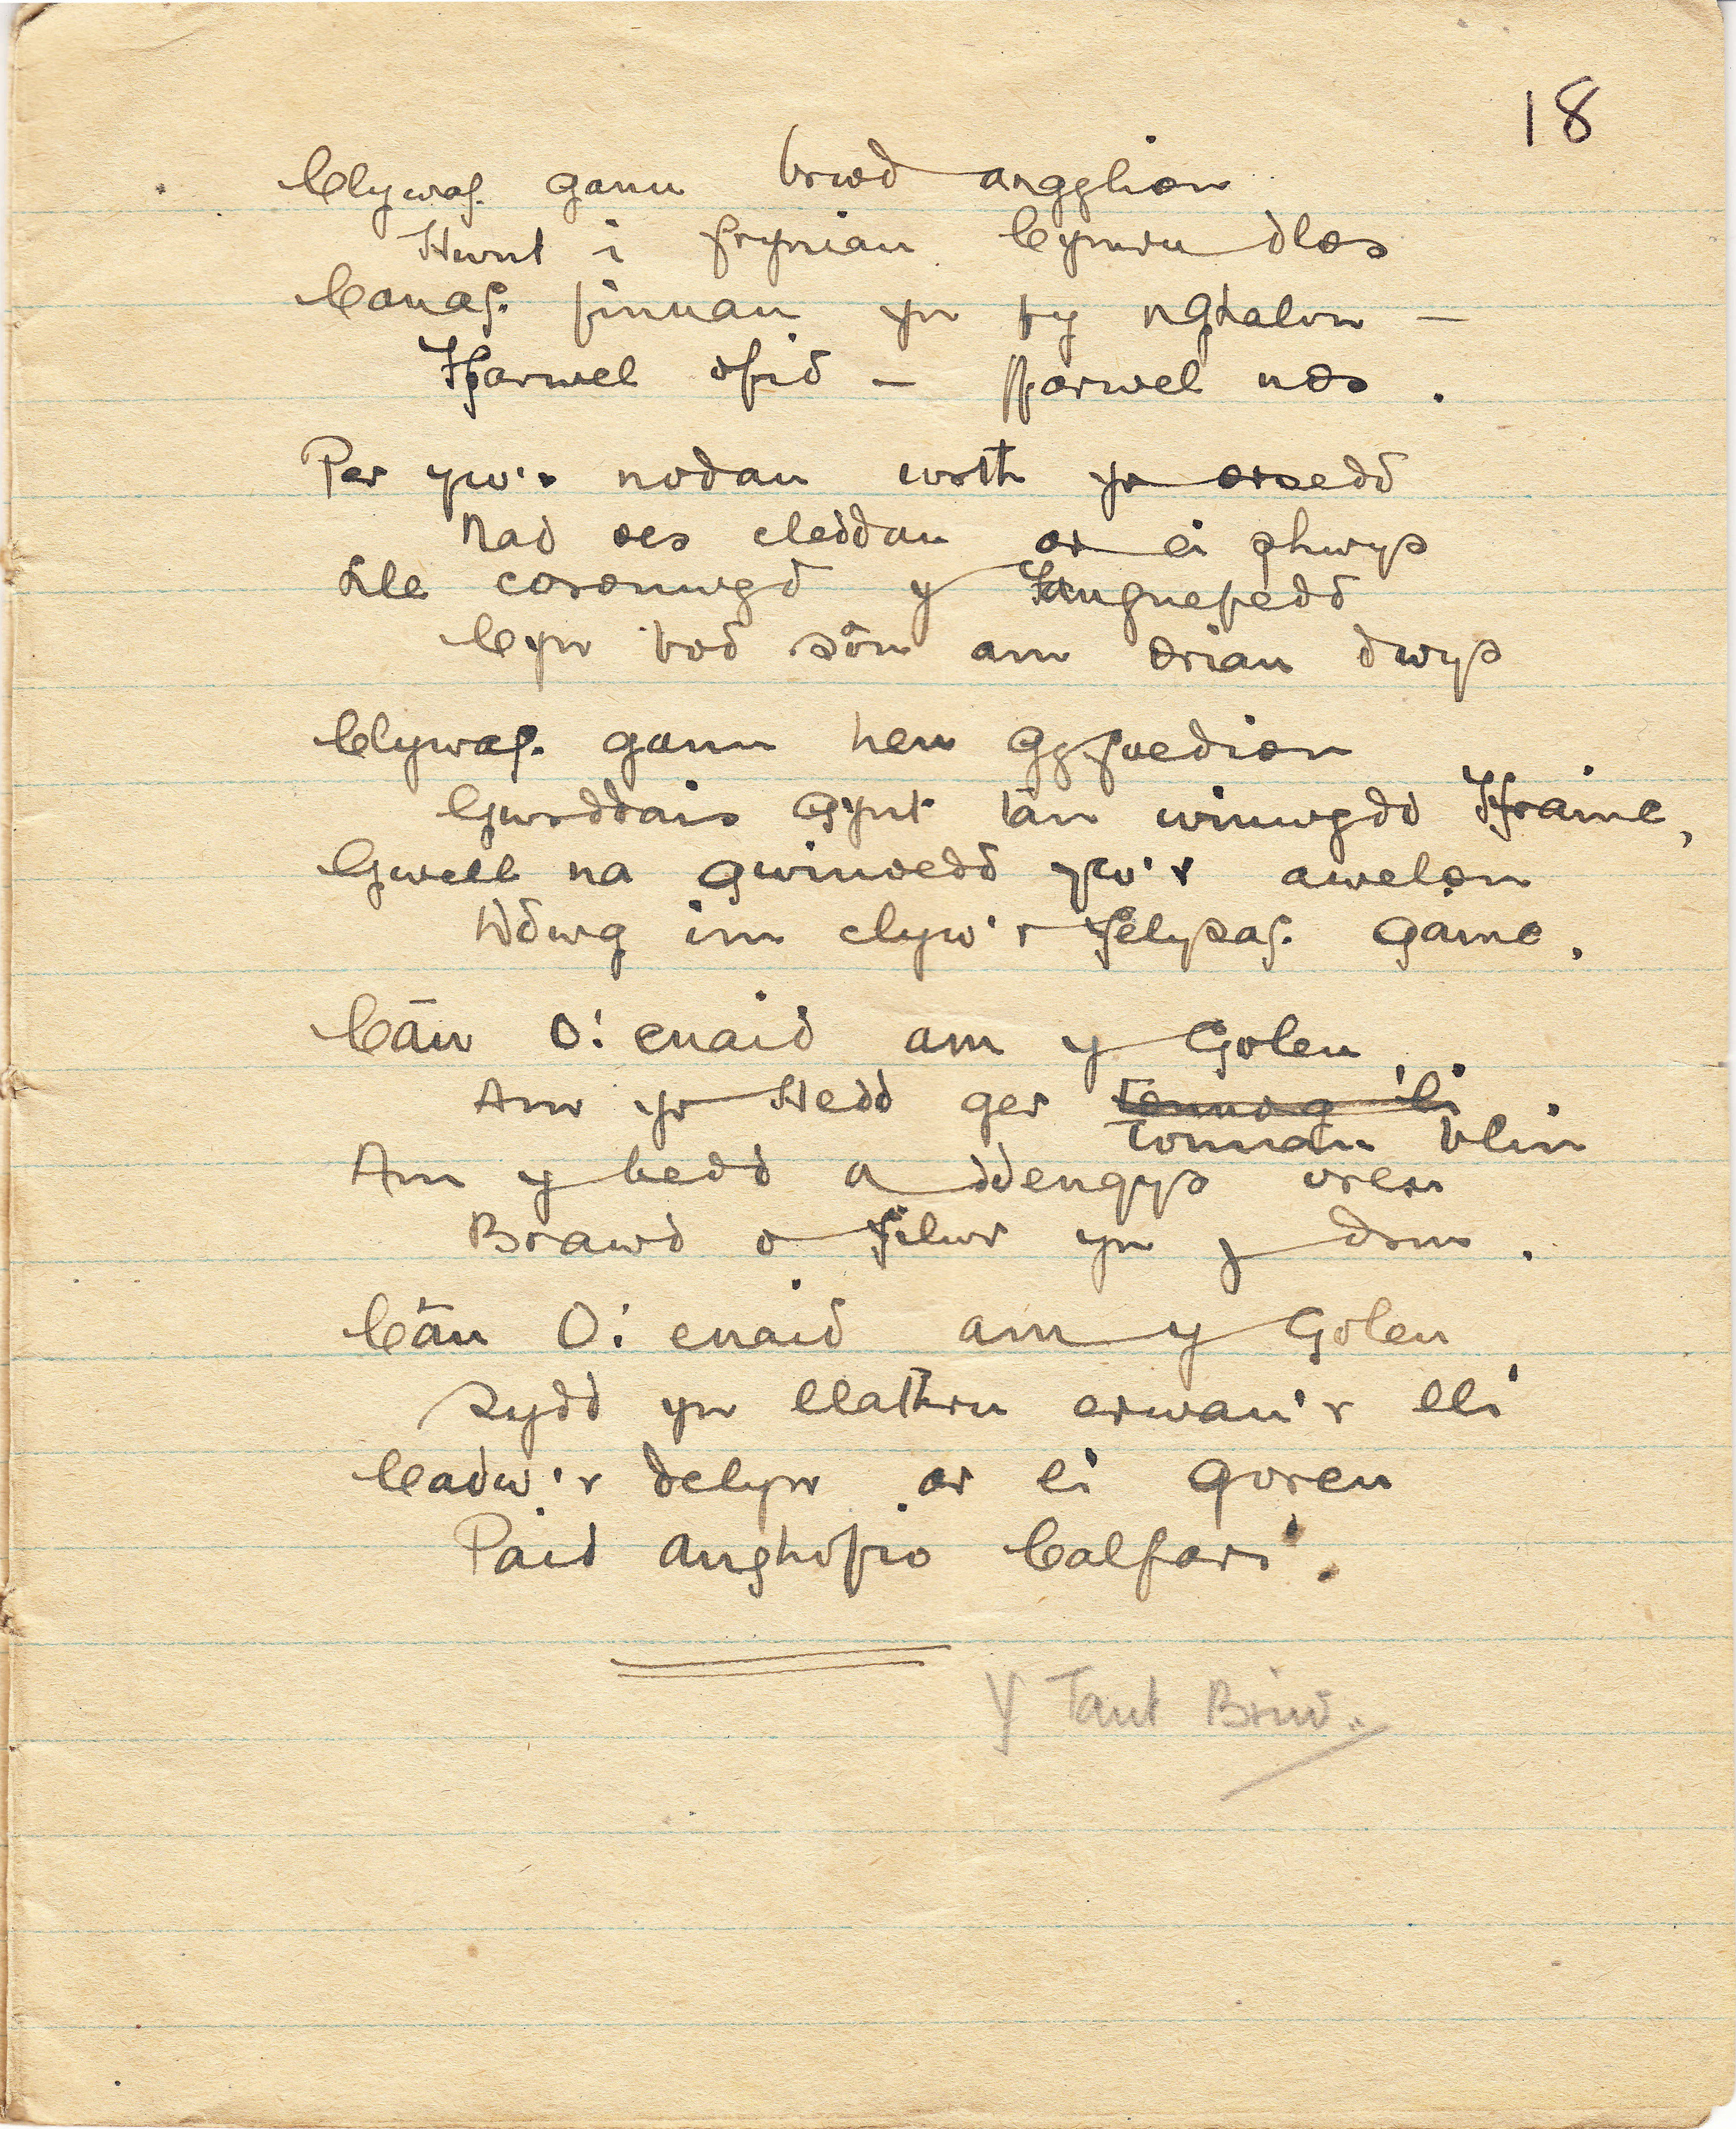 18
Clywaf ganu brwd angylion
Hwnt i fryniau Cymru dlos
Canaf finnau yn fy nghalon -
Ffarwel ofid - ffarwel nos.
Per yw'r nodau wrth yr orsedd
Nad oes cleddau ar ei phwys
Lle coronwyd y Tangnefedd
Cyn bod sôn am oriau dwys
Clywaf ganu hen gyfoedion
Gwrddais gynt tan winwydd Ffrainc,
Gwell na gwinoedd yw'r awelon
Ddwg im clyw'r felysaf gainc,
Cân O! enaid am y Goleu
Am yr Hedd ger tonnog li
tonnau blin
Am y bedd a ddengys oreu
Brawd o filwr yn y drin.
Cân O! enaid am y Goleu
Sydd yn llathru erwau'r lli
Cadw'r delyn ar ei goreu
Paid anghofio Calfari.
Y Tant Briw.